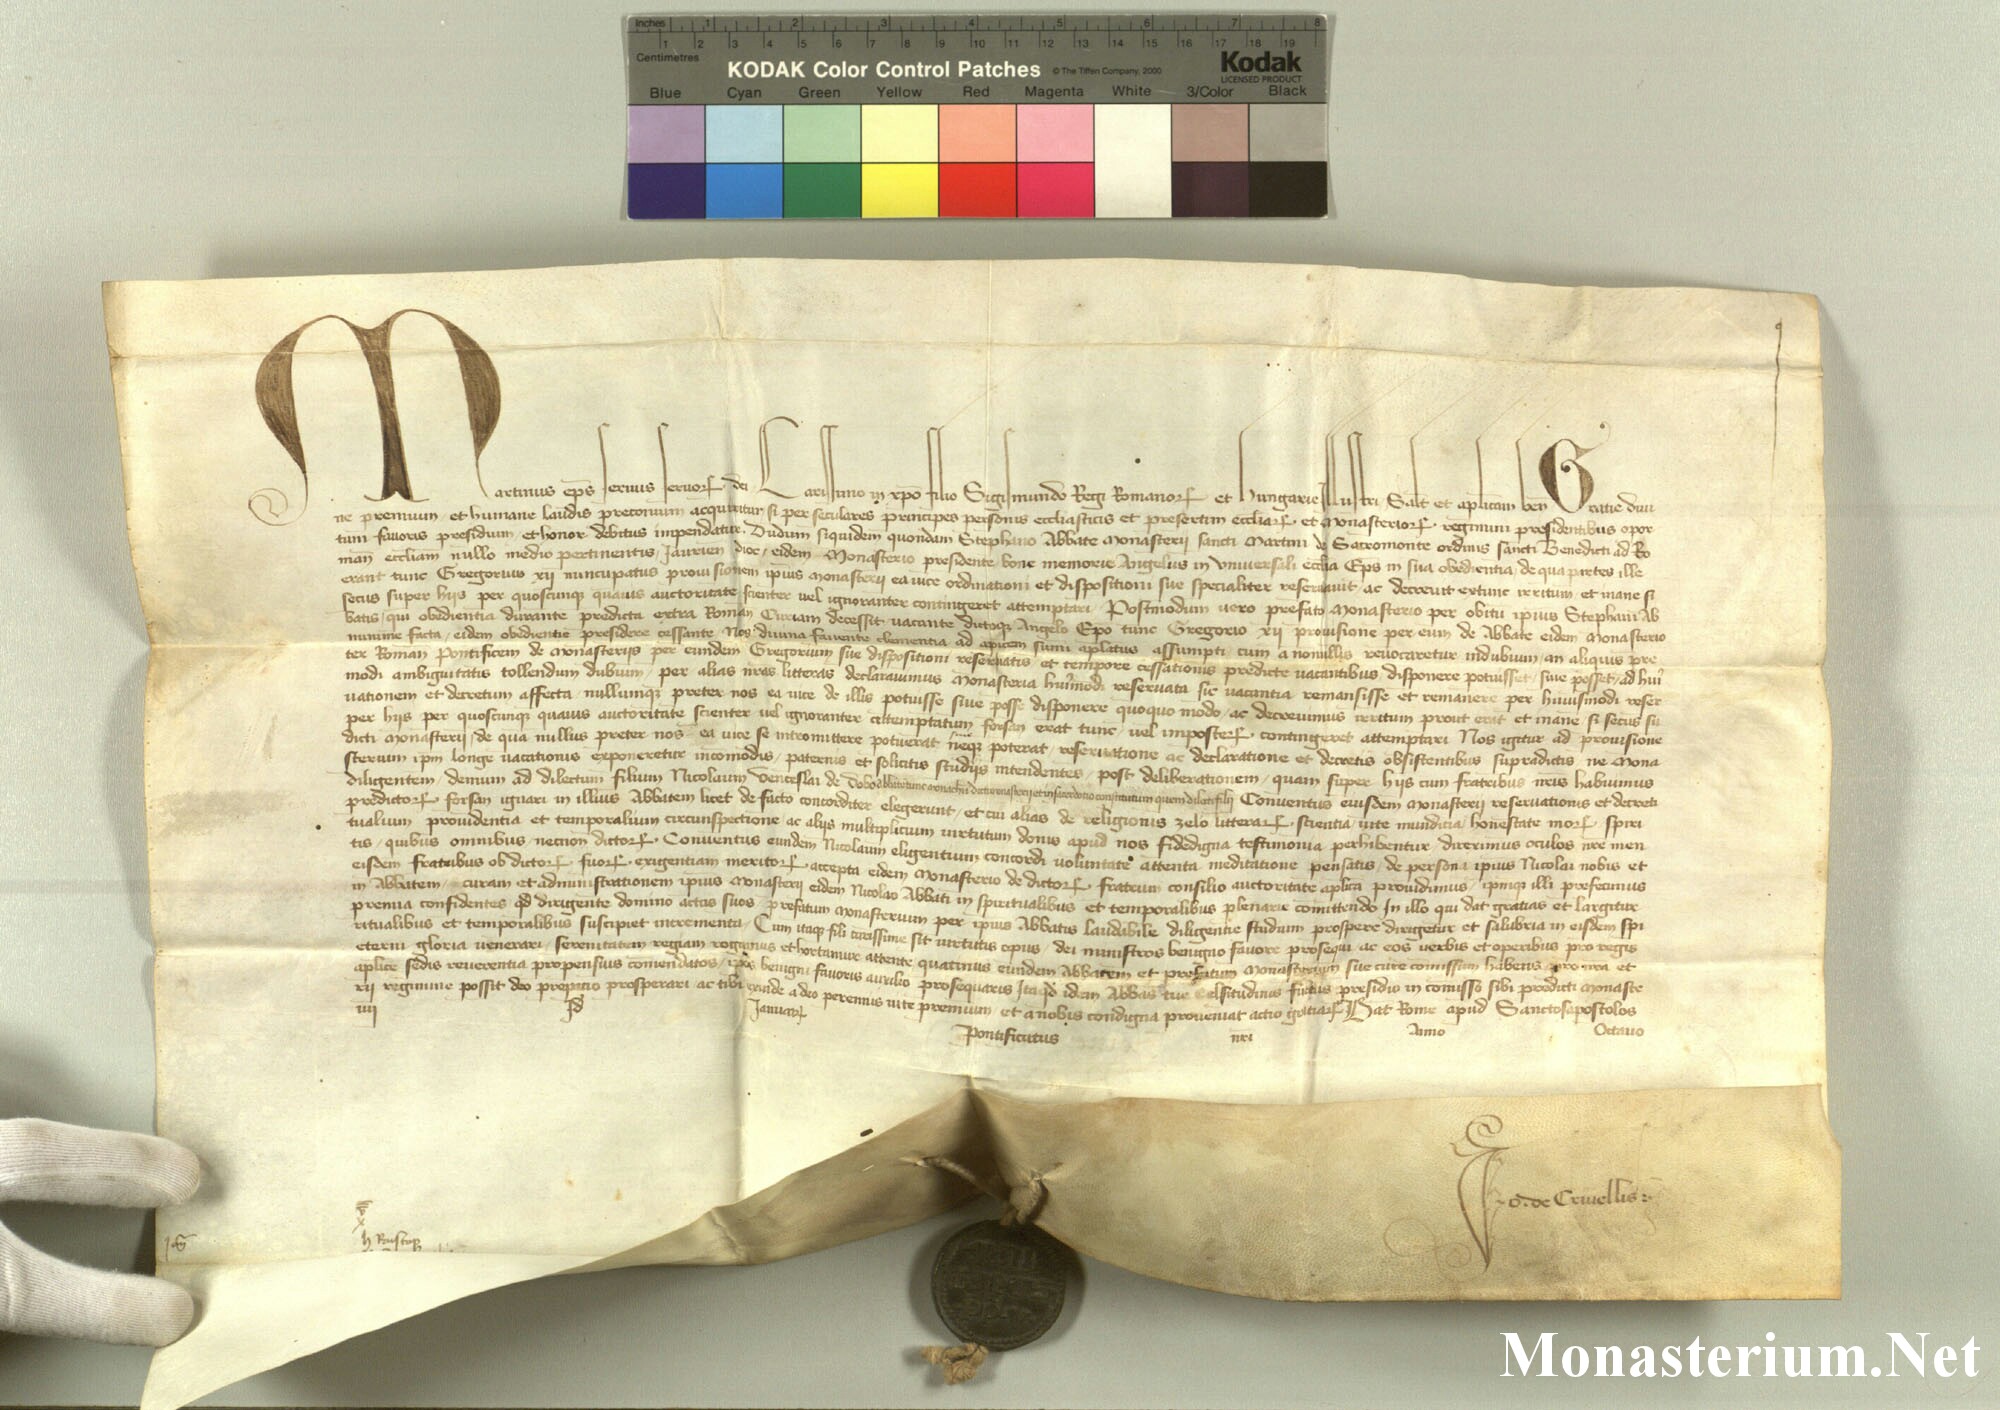 Inches 1 2 3 4 5 6 7 8
1 2 3 4 5 6 7 8 9 10 11 12 13 14 15 16 17 18 19
Centimetres
KODAK Color Control Patches © The Tiffen Company, 2000 Kodak
LICENSED PRODUCT
Blue Cyan Green Yellow Red Magenta White 3/Color Black
Martinus eps seruus seruor dei Carissimo in xpo filio Sigismundo Regi Romanor et hungarie Illustri Salt et aplicam ben Gratie diui
ne premium et humane laudis preconium acquiritur si per seculares principes personis ecclesiasticis et presertim eccliar et Monasterior regimini presidentibus opor
tuni fauoris presidium et honor debitus impendatur Dudum siquidem quondam Stephano Abbate Monasterii sancti Martini de Sacromonte ordinis sancti Benedicti ad Ro
man eccliam nullo medio pertinentis Jaurien dioc eidem Monasterio presidente bone memorie Angelus in Vniuersali ecclia Eps in sua obedientia de qua partes ille
erant tunc Gregorius xii nuncupatus prouisionem ipius Monasterii ea uice ordinationi et dispositioni sue specialiter reseruauit ac decreuit extunc irritum et inane si
secus super hiis per quoscunq quauis auctoritate scienter uel ignoranter contingeret attemptari Postmodum uero prefato Monasterio per obitu ipius Stephani Ab
batis qui obedientia durante predicta extra Roman Curiam decessit uacante dictoq Angelo Epo tunc Gregorio xii prouisione per eum de Abbate eidem Monasterio
minime facta eidem obedientie presidere cessante Nos diuina fauente clementia ad apicem sumi aplatus assumpti cum a nonullis reuocaretur indubium an aliquis pre
ter Roman Pontificem de monasteriis per eundem Gregorium sue dispositioni reseruatis et tempore cessationis predicte uacantibus disponere potuisset siue posset ad hui
modi ambiguitatis tollendum dubium per alias nras litteras declarauimus Monasteria huimodi reseruata sic uacantia remansisse et remanere per huiusmodi reser
uationem et decretum affecta nullumq preter nos ea uice de illis potuisse siue posse disponere quoquo modo ac decreuimus irritum prout erat et inane si secus su
per hiis per quoscunq quauis auctoritate scienter uel ignoranter attemptatum forsan erat tunc uel imposter contingeret attemptari Nos igitur ad prouisione
dicti Monasterii de qua nullus preter nos ea uice se intromittere potuerat neq poterat reseruatione ac declaratione et decretis obsistentibus supradictis ne Mona
sterium ipm longe uacationis exponeretur incomodis paternis et solicitis studiis intendentes post deliberationem quam super hiis cum fratribus nris habuimus
diligentem demum ad dilectum filium Nicolaum Venceslai de Dobo Abbatem tunc monachu dicti monasterii et in sacerdotio constitutum quem dilecti filii Conuentus eiusdem Monasterii reseruationis et decreti
predictor forsan ignari in illius Abbatem licet de facto concorditer elegerunt et cui alias de religionis zelo litterar scientia uite munditia honestate mor spiri
tualium prouidentia et temporalium circunspectione ac aliis multiplicium uirtutum donis apud nos fidedigna testimonia perhibentur direximus oculos nre men
tis quibus omnibus necnon dictor Conuentus eundem Nicolaum eligentium concordi uoluntate attenta meditatione pensatis de persona ipius Nicolai nobis et
eisdem fratribus ob dictor suor exigentiam meritor accepta eidem Monasterio de dictor fratrum consilio auctoritate aplica prouidimus ipmq illi prefecimus
in Abbatem curam et administrationem ipius Monasterii eidem Nicolao Abbati in spiritualibus et temporalibus plenarie comittendo In illo qui dat gratias et largitur
premia confidentes qd dirigente domino actus suos prefatum Monasterium per ipius Abbatis laudabile diligentie studium prospere dirigetur et salubria in eisdem spi
ritualibus et temporalibus suscipiet incrementa Cum itaq fili carissime sit uirtutis opus dei ministros benigno fauore prosequi ac eos uerbis et operibus pro regis
eterni gloria uenerari serenitatem regiam rogamus et hortamur attente quatinus eundem Abbatem et prefatum Monasterium sue cure comissum habens pro nra et
aplice sedis reuerentia propensius comendatos ipos benigni fauoris auxilio prosequaris Ita qd idem Abbas tue celsitudinis fultus presidio in comisso sibi predicti Monaste
rii regimine possit deo propitio prosperari ac tibi exinde a deo perennis uite premium et a nobis condigna proueniat actio gratiar Dat Rome apud Sanctosapostolos
iiii Id Januar Pontificatus nri Anno Octauo
Jo. de Criuellis
Monasterium.Net